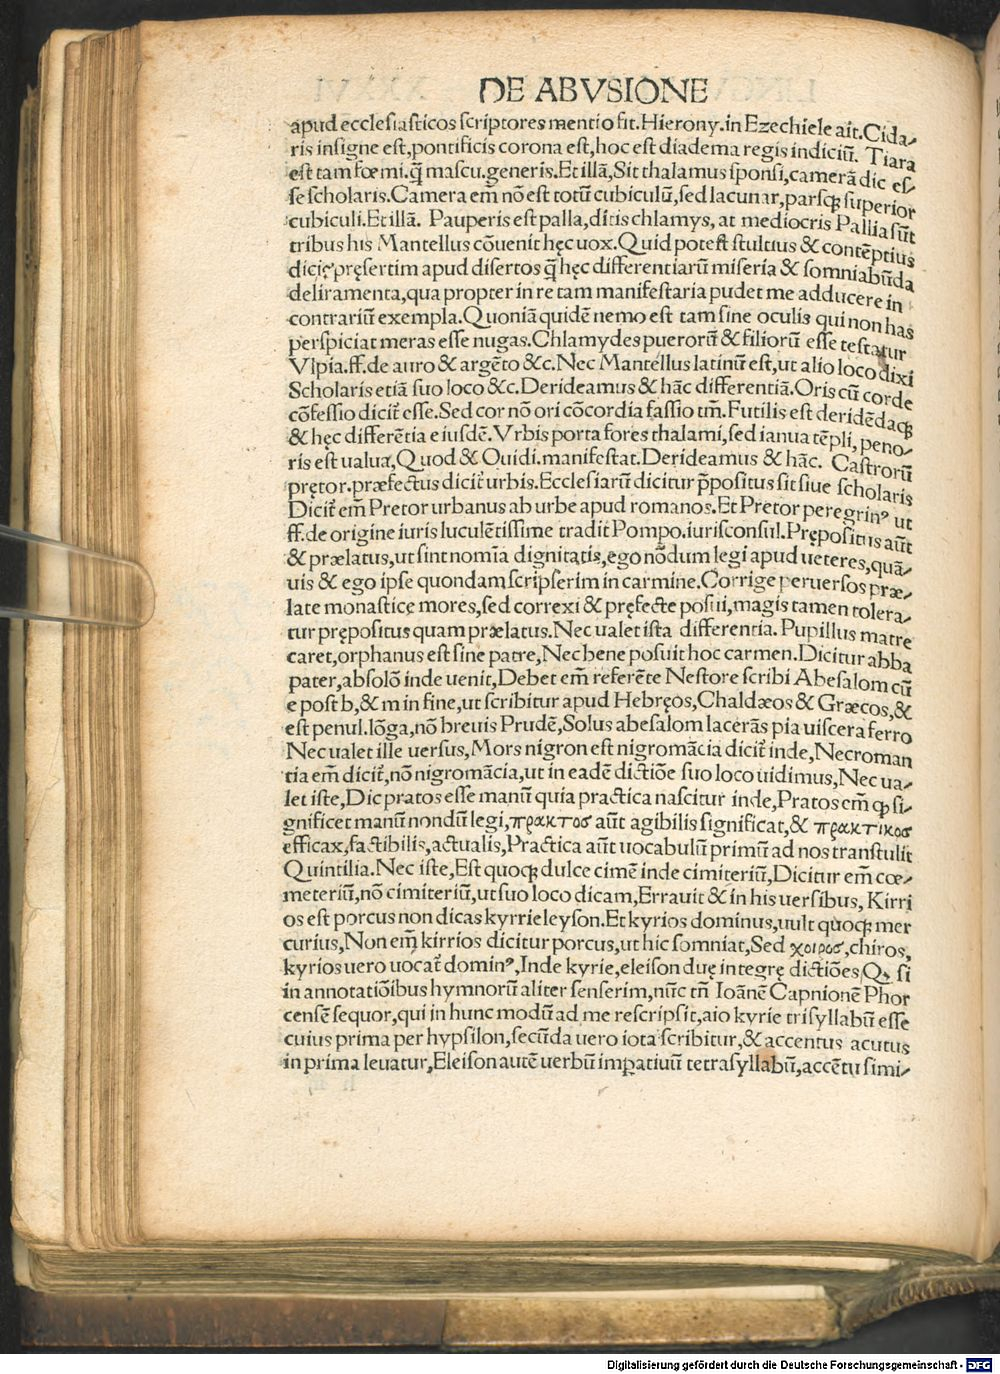 DE ABVSIONE
apud ecclesiasticos scriptores mentio fit. Hierony. in Ezechiele ait. Cida-
ris insigne est, pontificis corona est, hoc est diadema regis indiciū. Tiara
est tam fœmi. q̄ mascu. generis. Et illā, Sit thalamus sponsi, camerā dic es-
se scholaris. Camera em̄ nō est totū cubiculū, sed lacunar, parsq; superior
cubiculi. Et illā. Pauperis est palla, ditis chlamys, at mediocris Pallia sūt
tribus his Mantellus cōuenit hęc uox. Quid potest stultius & contēptius
dici, pręsertim apud disertos q̄ hęc differentiarū miseria & somniabūda
deliramenta, qua propter in re tam manifestaria pudet me adducere in
contrariū exempla. Quoniā quidē nemo est tam sine oculis qui non has
perspiciat meras esse nugas. Chlamydes puerorū & filiorū esse testatur
Vlpia. ff. de auro & argēto &c. Nec Mantellus latinū est, ut alio loco dixi
Scholaris etiā suo loco &c. Derideamus & hāc differentiā. Oris cū corde
cōfessio dicit̄ esse. Sed cor nō ori cōcordia fassio tm̄. Futilis est deridēdaq;
& hęc differētia eiusdē. Vrbis porta fores thalami, sed ianua tēpli, peno-
ris est ualua, Quod & Ouidi. manifestat. Derideamus & hāc. Castrorū
prętor. præfectus dicit̄ urbis. Ecclesiarū dicitur p̄positus sit siue scholaris
Dicit̄ em̄ Pretor urbanus ab urbe apud romanos. Et Pretor peregrinꝰ ut
ff. de origine iuris luculētissime tradit Pompo. iurisconsul. Prępositus aūt
& prælatus, ut sint nomīa dignitatis, ego nōdum legi apud ueteres, quā-
uis & ego ipse quondam scripserim in carmine. Corrige peruersos præ-
late monasticę mores, sed correxi & pręfecte posui, magis tamen tolera-
tur prępositus quam prælatus. Nec ualet ista differentia. Pupillus matre
caret, orphanus est sine patre, Nec bene posuit hoc carmen. Dicitur abba
pater, absolō inde uenit, Debet em̄ referēte Nestore scribi Abesalom cū
e post b, & m in fine, ut scribitur apud Hebręos, Chaldæos & Græcos, &
est penul. lōga, nō breuis Prudē, Solus abesalom lacerās pia uiscera ferro
Nec ualet ille uersus, Mors nigron est nigromācia dicit̄ inde, Necroman
tia em̄ dicit̄, nō nigromācia, ut in eadē dictiōe suo loco uidimus, Nec ua-
let iste, Dic pratos esse manū quia practica nascitur inde, Pratos em̄ q; si-
gnificet manū nondū legi, πρακτος aūt agibilis significat, & πρακτικος
efficax, factibilis, actualis, Practica aūt uocabulū primū ad nos transtulit
Quintilia. Nec iste, Est quoq; dulce cimē inde cimiteriū, Dicitur em̄ cœ-
meteriū, nō cimiteriū, ut suo loco dicam, Errauit & in his uersibus, Kirri
os est porcus non dicas kyrrieleyson. Et kyrios dominus, uult quoq; mer
curius, Non em̄ kirrios dicitur porcus, ut hic somniat, Sed χοιρος, chiros,
kyrios uero uocat̄ dominꝰ, Inde kyrie, eleison duę integrę dictiōes, Qꝫ si
in annotatiōibus hymnorū aliter senserim, nūc tn̄ Ioānē Capnionē Phor
censē sequor, qui in hunc modū ad me rescripsit, aio kyrie trisyllabū esse
cuius prima per hypsilon, secūda uero iota scribitur, & accentus acutus
in prima leuatur, Eleison autē uerbū imꝑatiuū tetrasyllabū, accētu simi-
Digitalisierung gefördert durch die Deutsche Forschungsgemeinschaft - DFG